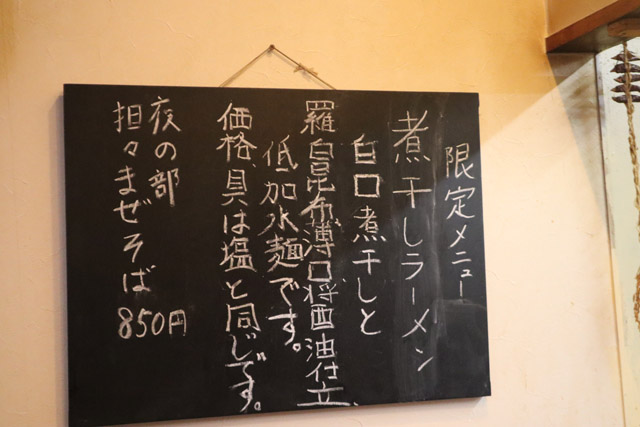 限定メニュー
煮干しラーメン
白口煮干しと
羅臼昆布薄口醤油仕立、
低加水麺です。
価格、具は塩と同じです。
夜の部
担々まぜそば
850円